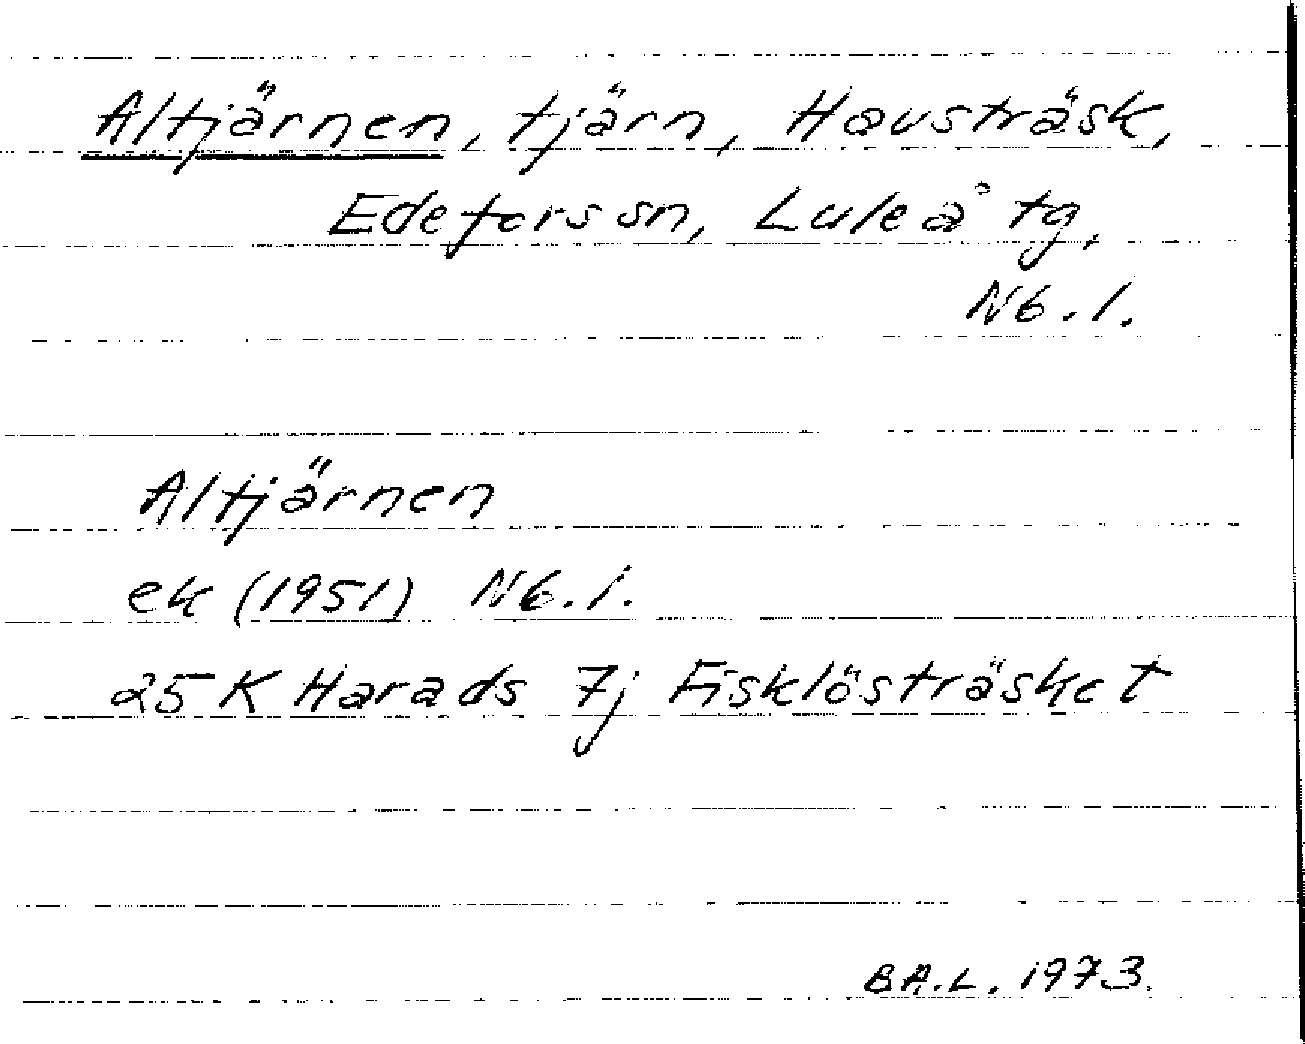 Altjärnen, tjärn, Havsträsk,
Edefors sn, Luleå tg,
Nb. l.
Altjärnen
ek (1951) Nb. l.
25 K Harads 7j Fisklösträsket
BA.L. 1973.